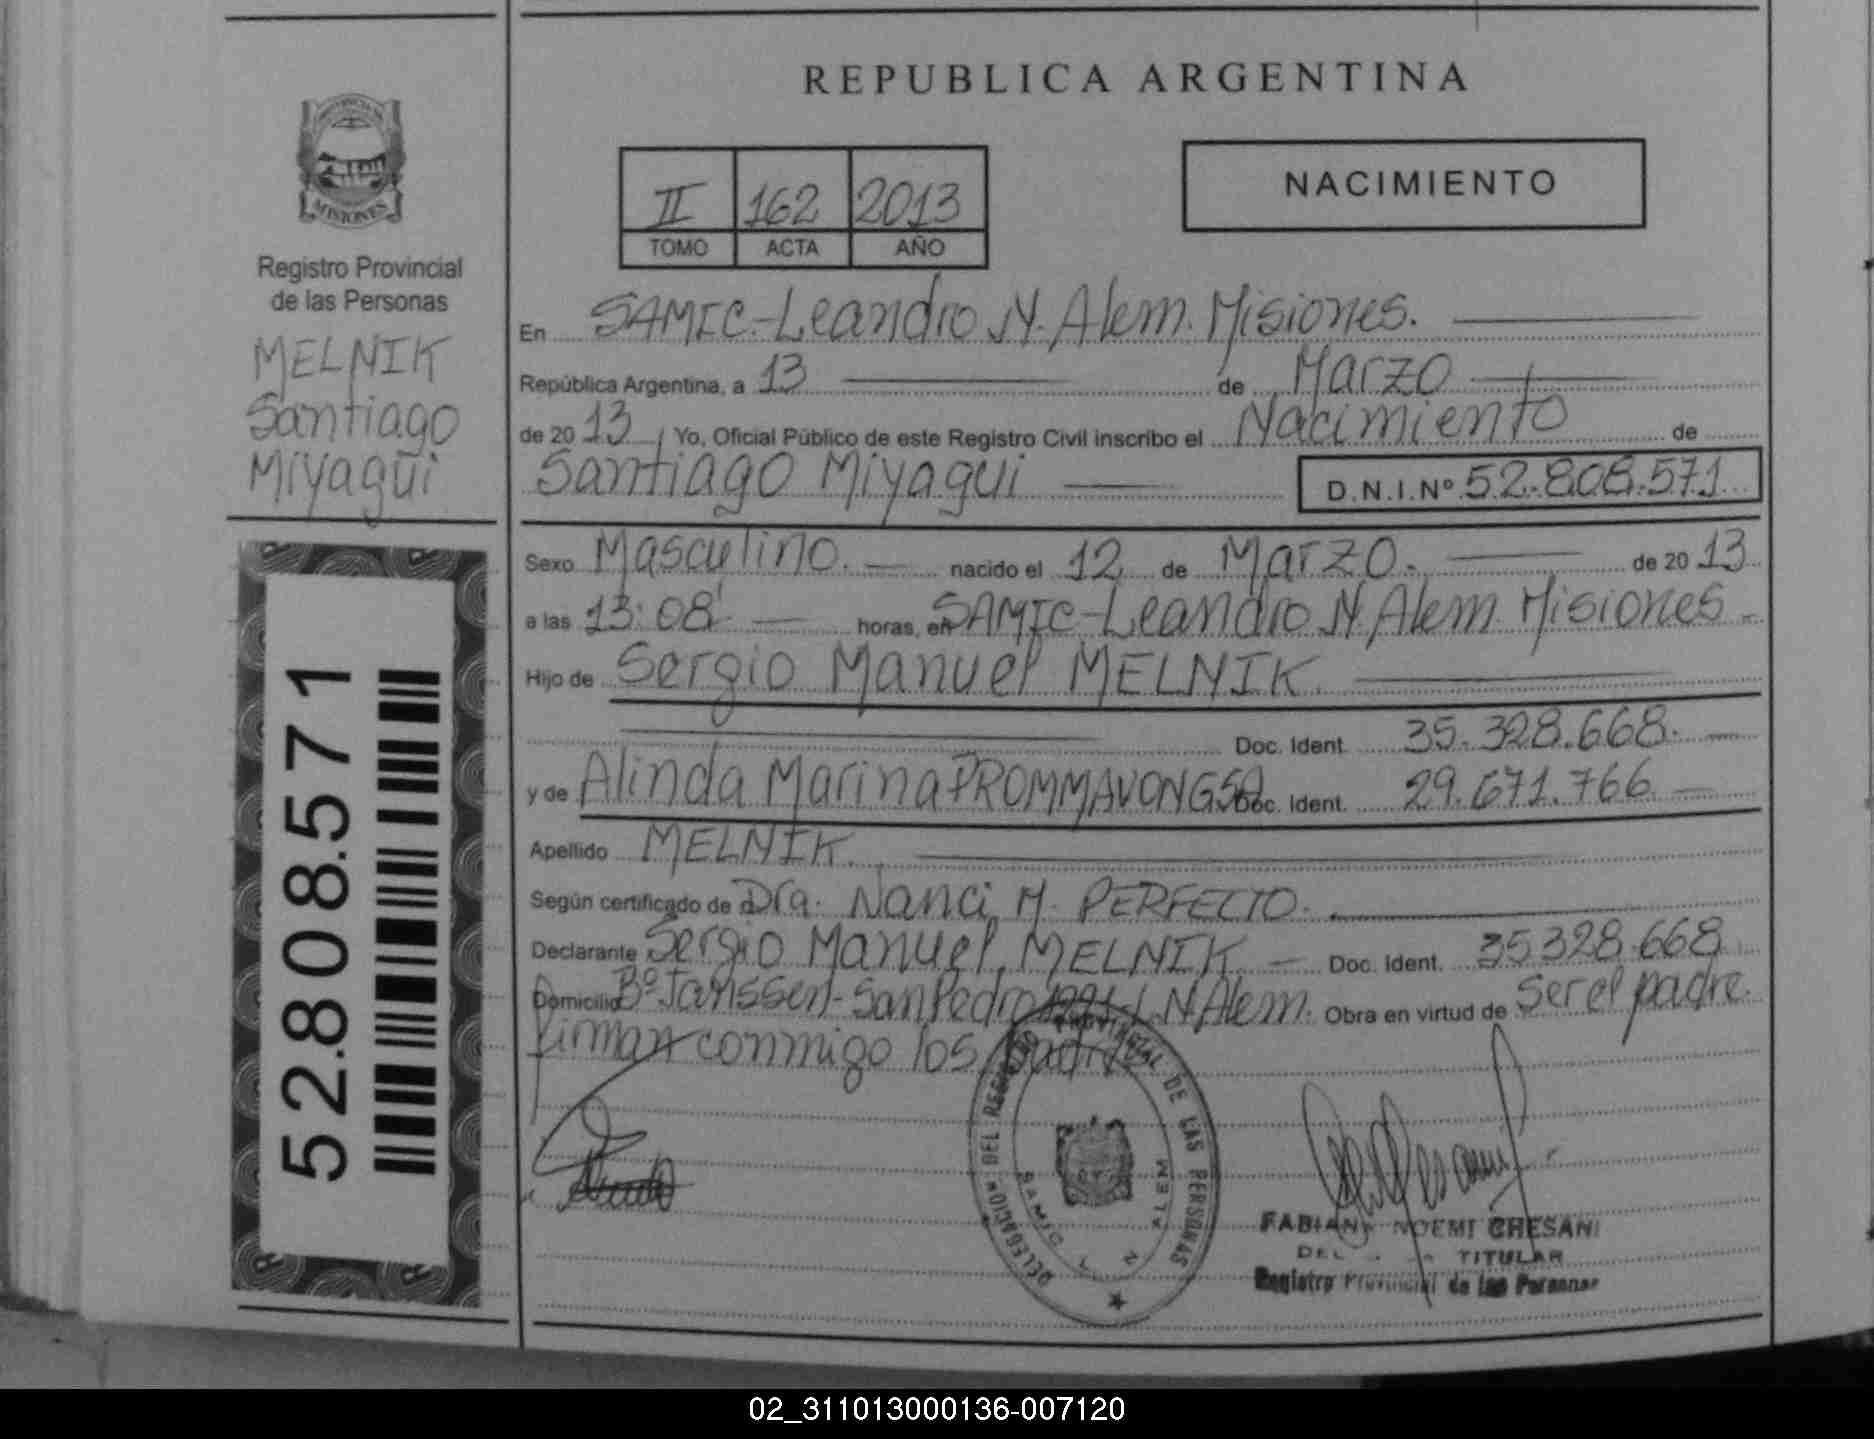 REPUBLICA ARGENTINA
PROVINCIA DE
MISIONES
Registro Provincial
de las Personas
MELNIK
Santiago
Miyagüi
52.808.571
II 162 2013
TOMO ACTA AÑO
NACIMIENTO
En SAMIC-Leandro N. Alem. Misiones.
República Argentina, a 13 de Marzo
de 2013, Yo, Oficial Público de este Registro Civil inscribo el Nacimiento de
Santiago Miyagui D.N.I.Nº 52.808.571
Sexo Masculino. nacido el 12 de Marzo. de 2013
a las 13:08' horas, en SAMIC-Leandro N. Alem. Misiones
Hijo de Sergio Manuel MELNIK.
Doc. Ident. 35.328.668.
y de Alinda Marina PROMMAVONGSA Doc. Ident. 29.671.766
Apellido MELNIK.
Según certificado de Dra. Nanci M. PERFECTO.
Declarante Sergio Manuel MELNIK. Doc. Ident. 35328.668
Domicilio Bº Janssen-San Pedro 1221-L.N.Alem. Obra en virtud de ser el padre.
firman conmigo los padres
DELEGACION DEL REGISTRO PROVINCIAL DE LAS PERSONAS
SAMIC L N ALEM
FABIANA NOEMI CHESANI
TITULAR
Registro Provincial de las Personas
02_311013000136-007120